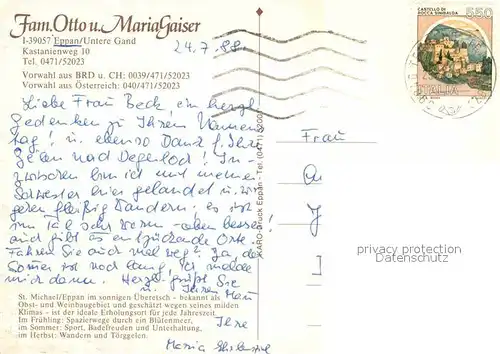 Fam. Otto u. Maria Gaiser
I-39057 Eppan/Untere Gand
Kastanienweg 10
Tel. 0471/52023
Vorwahl aus BRD u. CH: 0039/471/52023
Vorwahl aus Österreich: 040/471/52023
24.7.88
CASTELLO DI
ROCCA SINIBALDA
550
ITALIA
Liebe Frau Beck, ein herzl.
Gedenken zu Ihrem Namens
tag! u. ebenso Dank f. Ihre
In-
zwischen bin ich mit meiner
Schwester hier gelandet u. wir
fleißig wandern. es ist
im Tal sehr warm - oben besser!
auch gibt es entzückende Orte.
Fahren Sie auch mal weg? Ja, der
Sommer ist noch lang. ich melde
mich dann. Herzl. grüßt Sie
u. Ihren Mann
Ihre
Maria
Frau
KARO-Druck Eppan - Tel. (0471) 52000
privacy protection
Datenschutz
St. Michael/Eppan im sonnigen Überetsch - bekannt als
Obst- und Weinbaugebiet und geschätzt wegen seines milden
Klimas - ist der ideale Erholungsort für jede Jahreszeit.
Im Frühling: Spazierwege durch ein Blütenmeer,
im Sommer: Sport, Badefreuden und Unterhaltung,
im Herbst: Wandern und Törggelen.